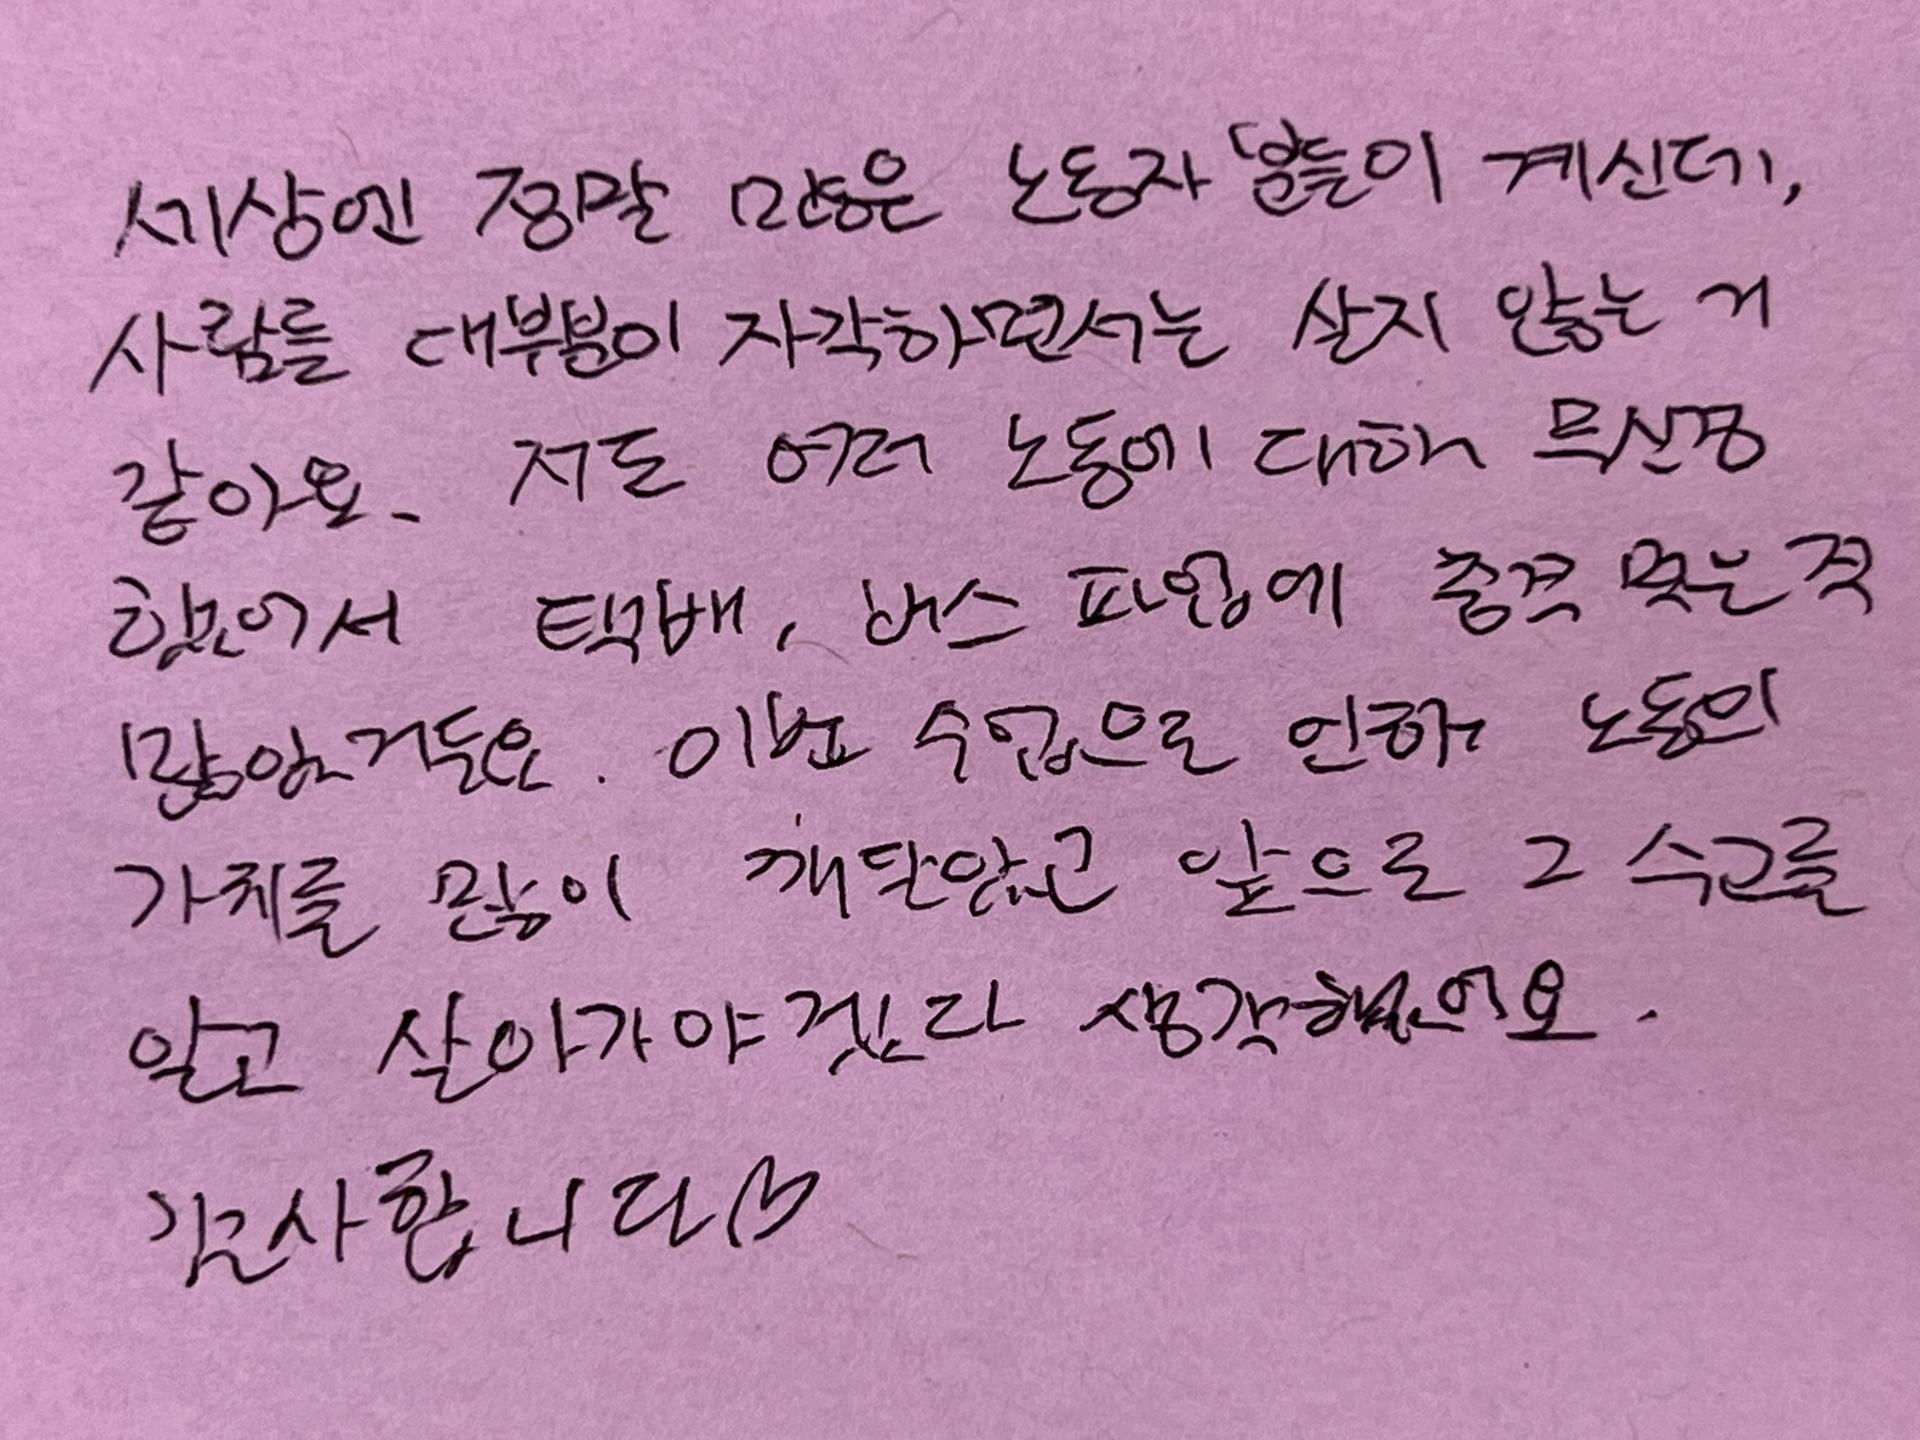 세상엔 정말 많은 노동자분들이 계신데,
사람들 대부분이 자각하면서는 살지 않는 거
같아요. 저도 여러 노동에 대해 무신경
했어서 택배, 버스 파업에 충격 먹은 적
많았거든요. 이번 수업으로 인해 노동의
가치를 많이 깨달았고 앞으로 그 수고를
알고 살아가야겠다 생각했어요.
감사합니다♡